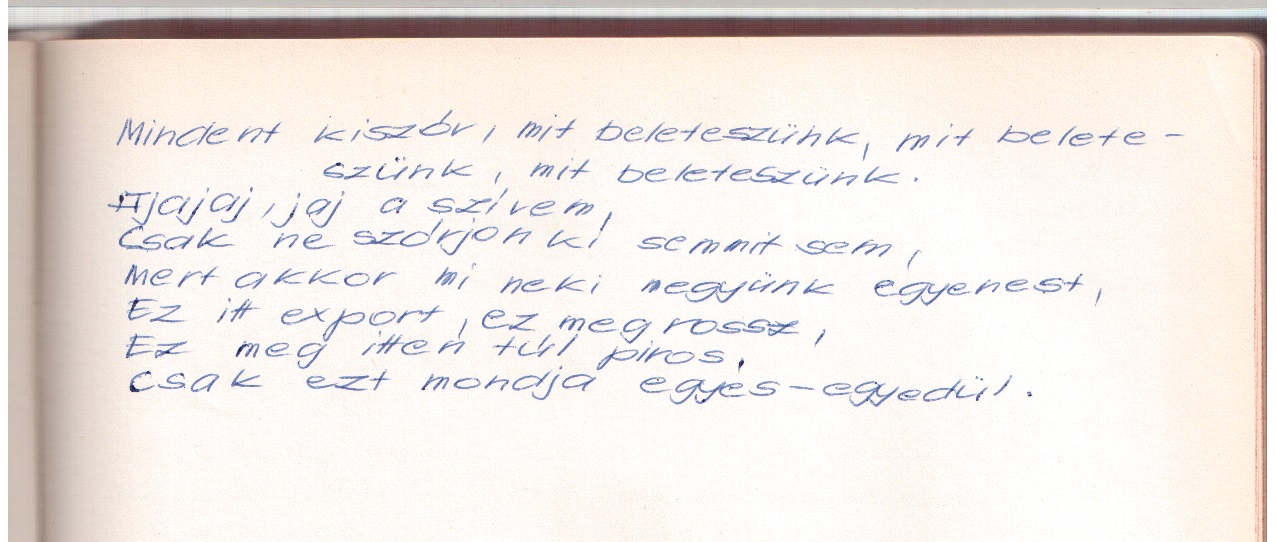 Mindent kiszór, mit beleteszünk, mit belete-
szünk, mit beleteszünk.
Ajajaj, jaj a szívem,
Csak ne szórjon ki semmit sem,
Mert akkor mi neki megyünk egyenest,
Ez itt export, ez meg rossz,
Ez meg itten túl piros,
csak ezt mondja egyes-egyedül.